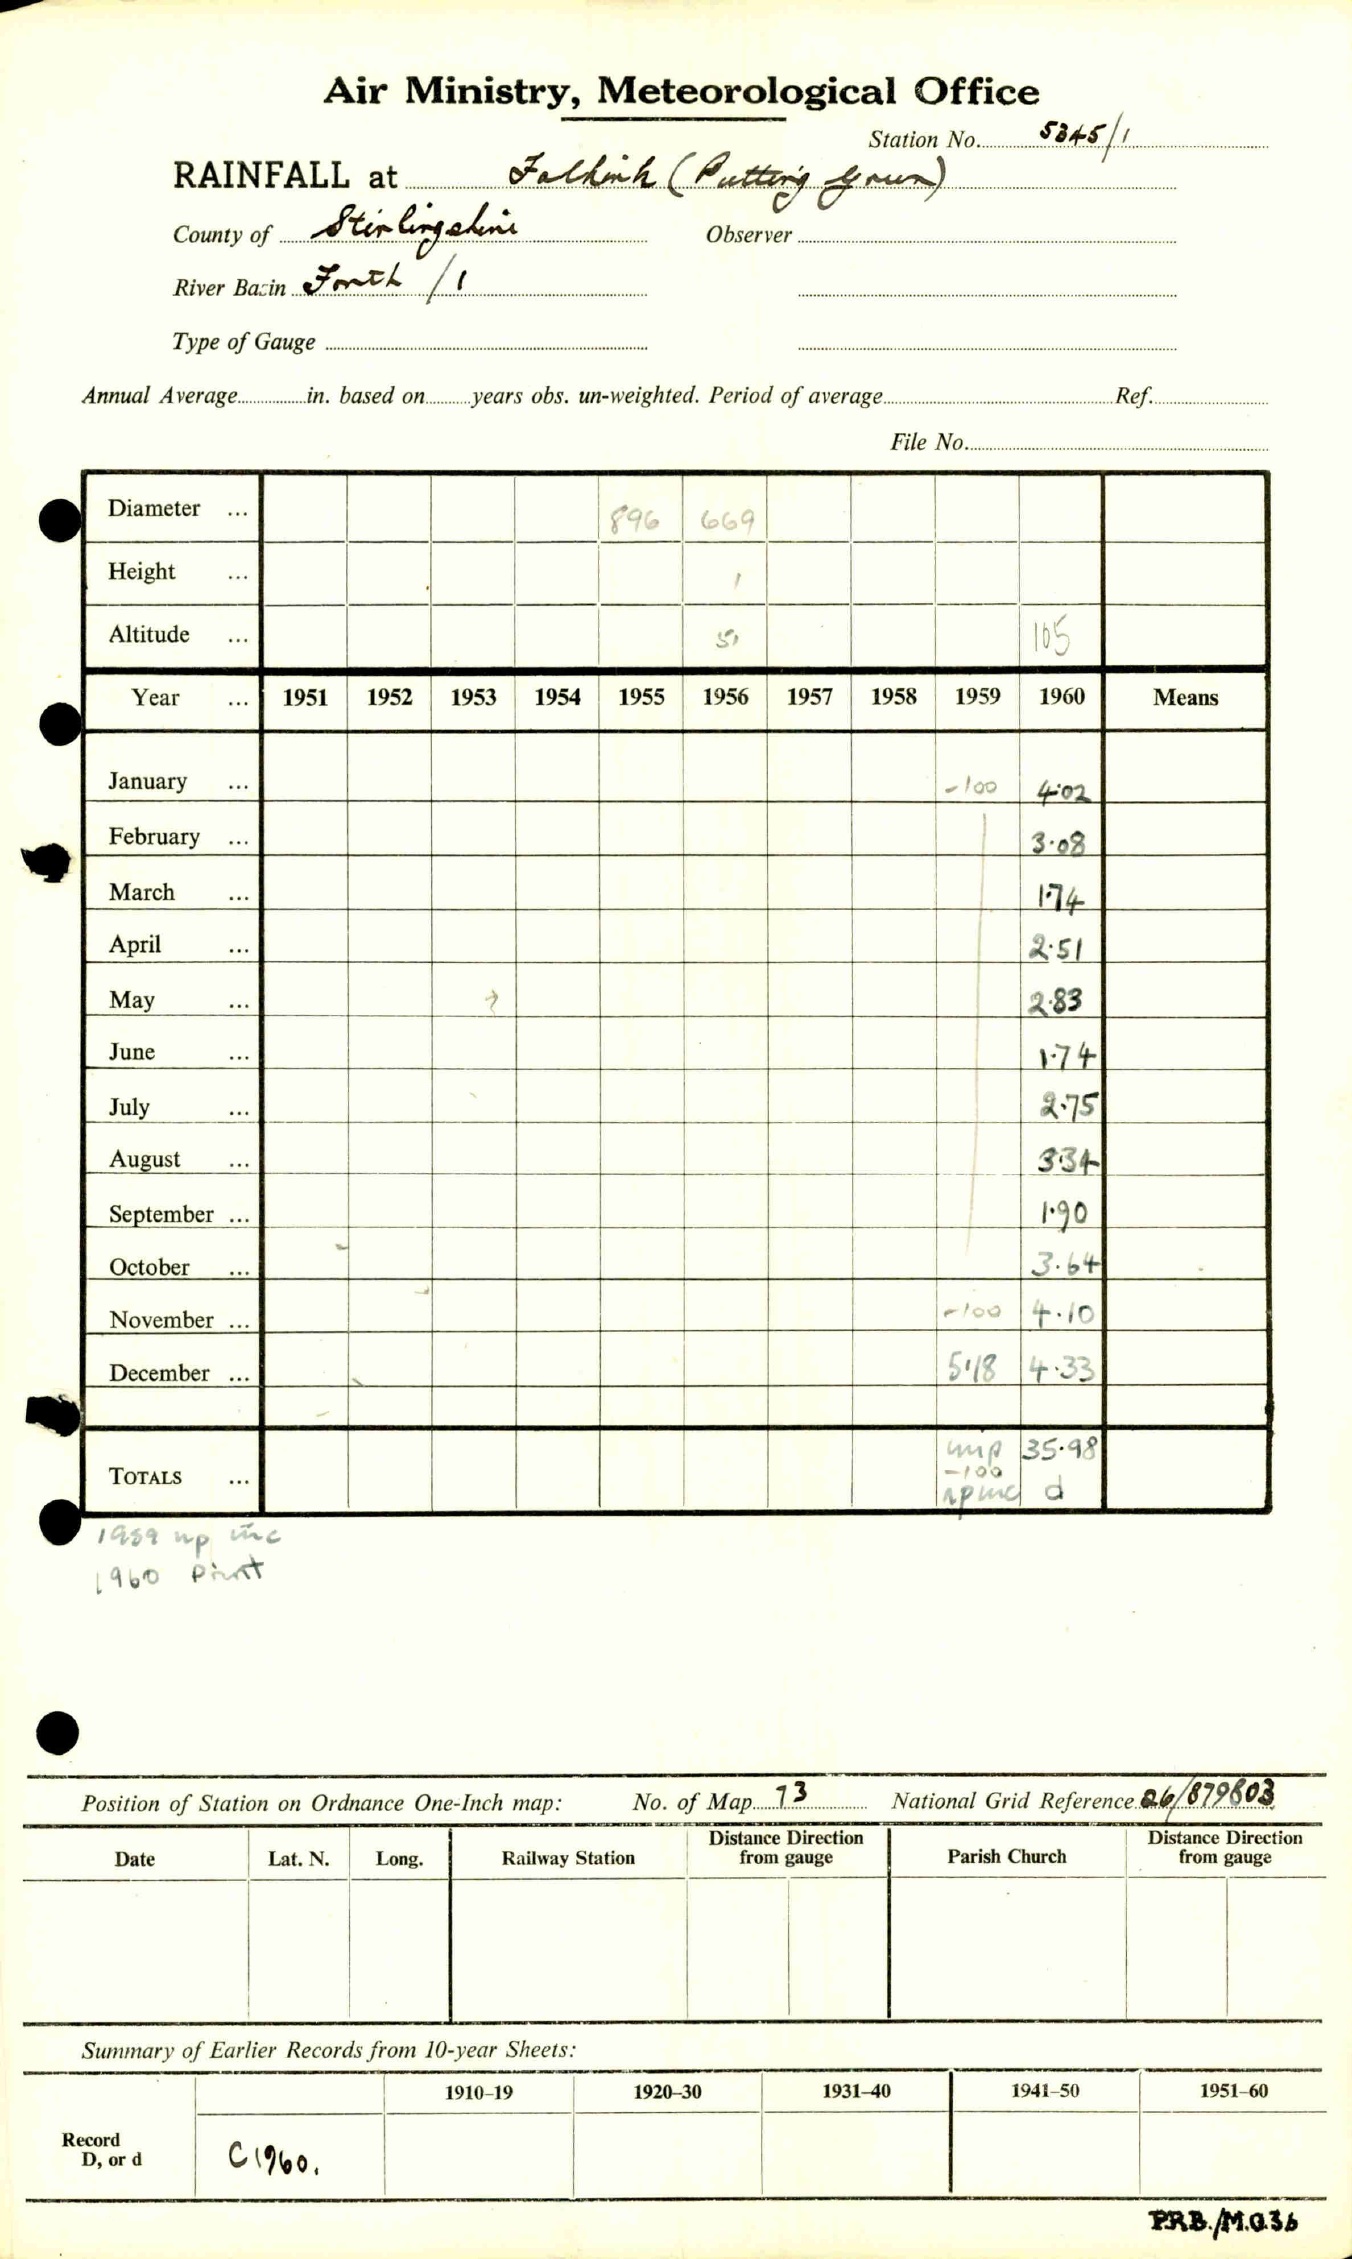 Air Ministry, Meteorological Office
Station No. 5345/1
RAINFALL at Falkirk (Putting Green)
County of Stirlingshire Observer
River Basin Forth /1
Type of Gauge
Annual Average in. based on years obs. un-weighted. Period of average Ref.
File No.
Diameter ... 896 669
Height ... 1
Altitude ... 51 105
Year ... 1951 1952 1953 1954 1955 1956 1957 1958 1959 1960 Means
January ... -100 4.02
February ... 3.08
March ... 1.74
April ... 2.51
May ... 2.83
June ... 1.74
July ... 2.75
August ... 3.34
September ... 1.90
October ... 3.64
November ... -100 4.10
December ... 5.18 4.33
35.98
-100
TOTALS ... d
1959 np inc
1960 Print
Position of Station on Ordnance One-Inch map: No. of Map 73 National Grid Reference 26/879803
Date Lat. N. Long. Railway Station Distance Direction from gauge Parish Church Distance Direction from gauge
Summary of Earlier Records from 10-year Sheets:
1910–19 1920–30 1931–40 1941–50 1951–60
Record
D, or d C1960.
P.R.B./M.O.36